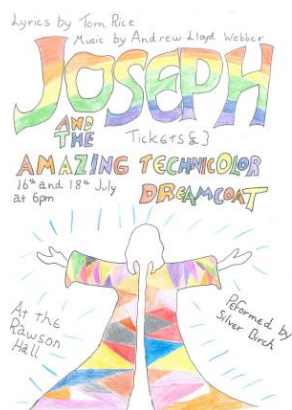 Lyrics by Tom Rice
Music by Andrew Lloyd Webber
JOSEPH
AND
THE
Tickets £3
AMAZING TECHNICOLOR
16th and 18th July
at 6pm
DREAMCOAT
At the
Rawson
Hall
Peformed by
Silver Birch